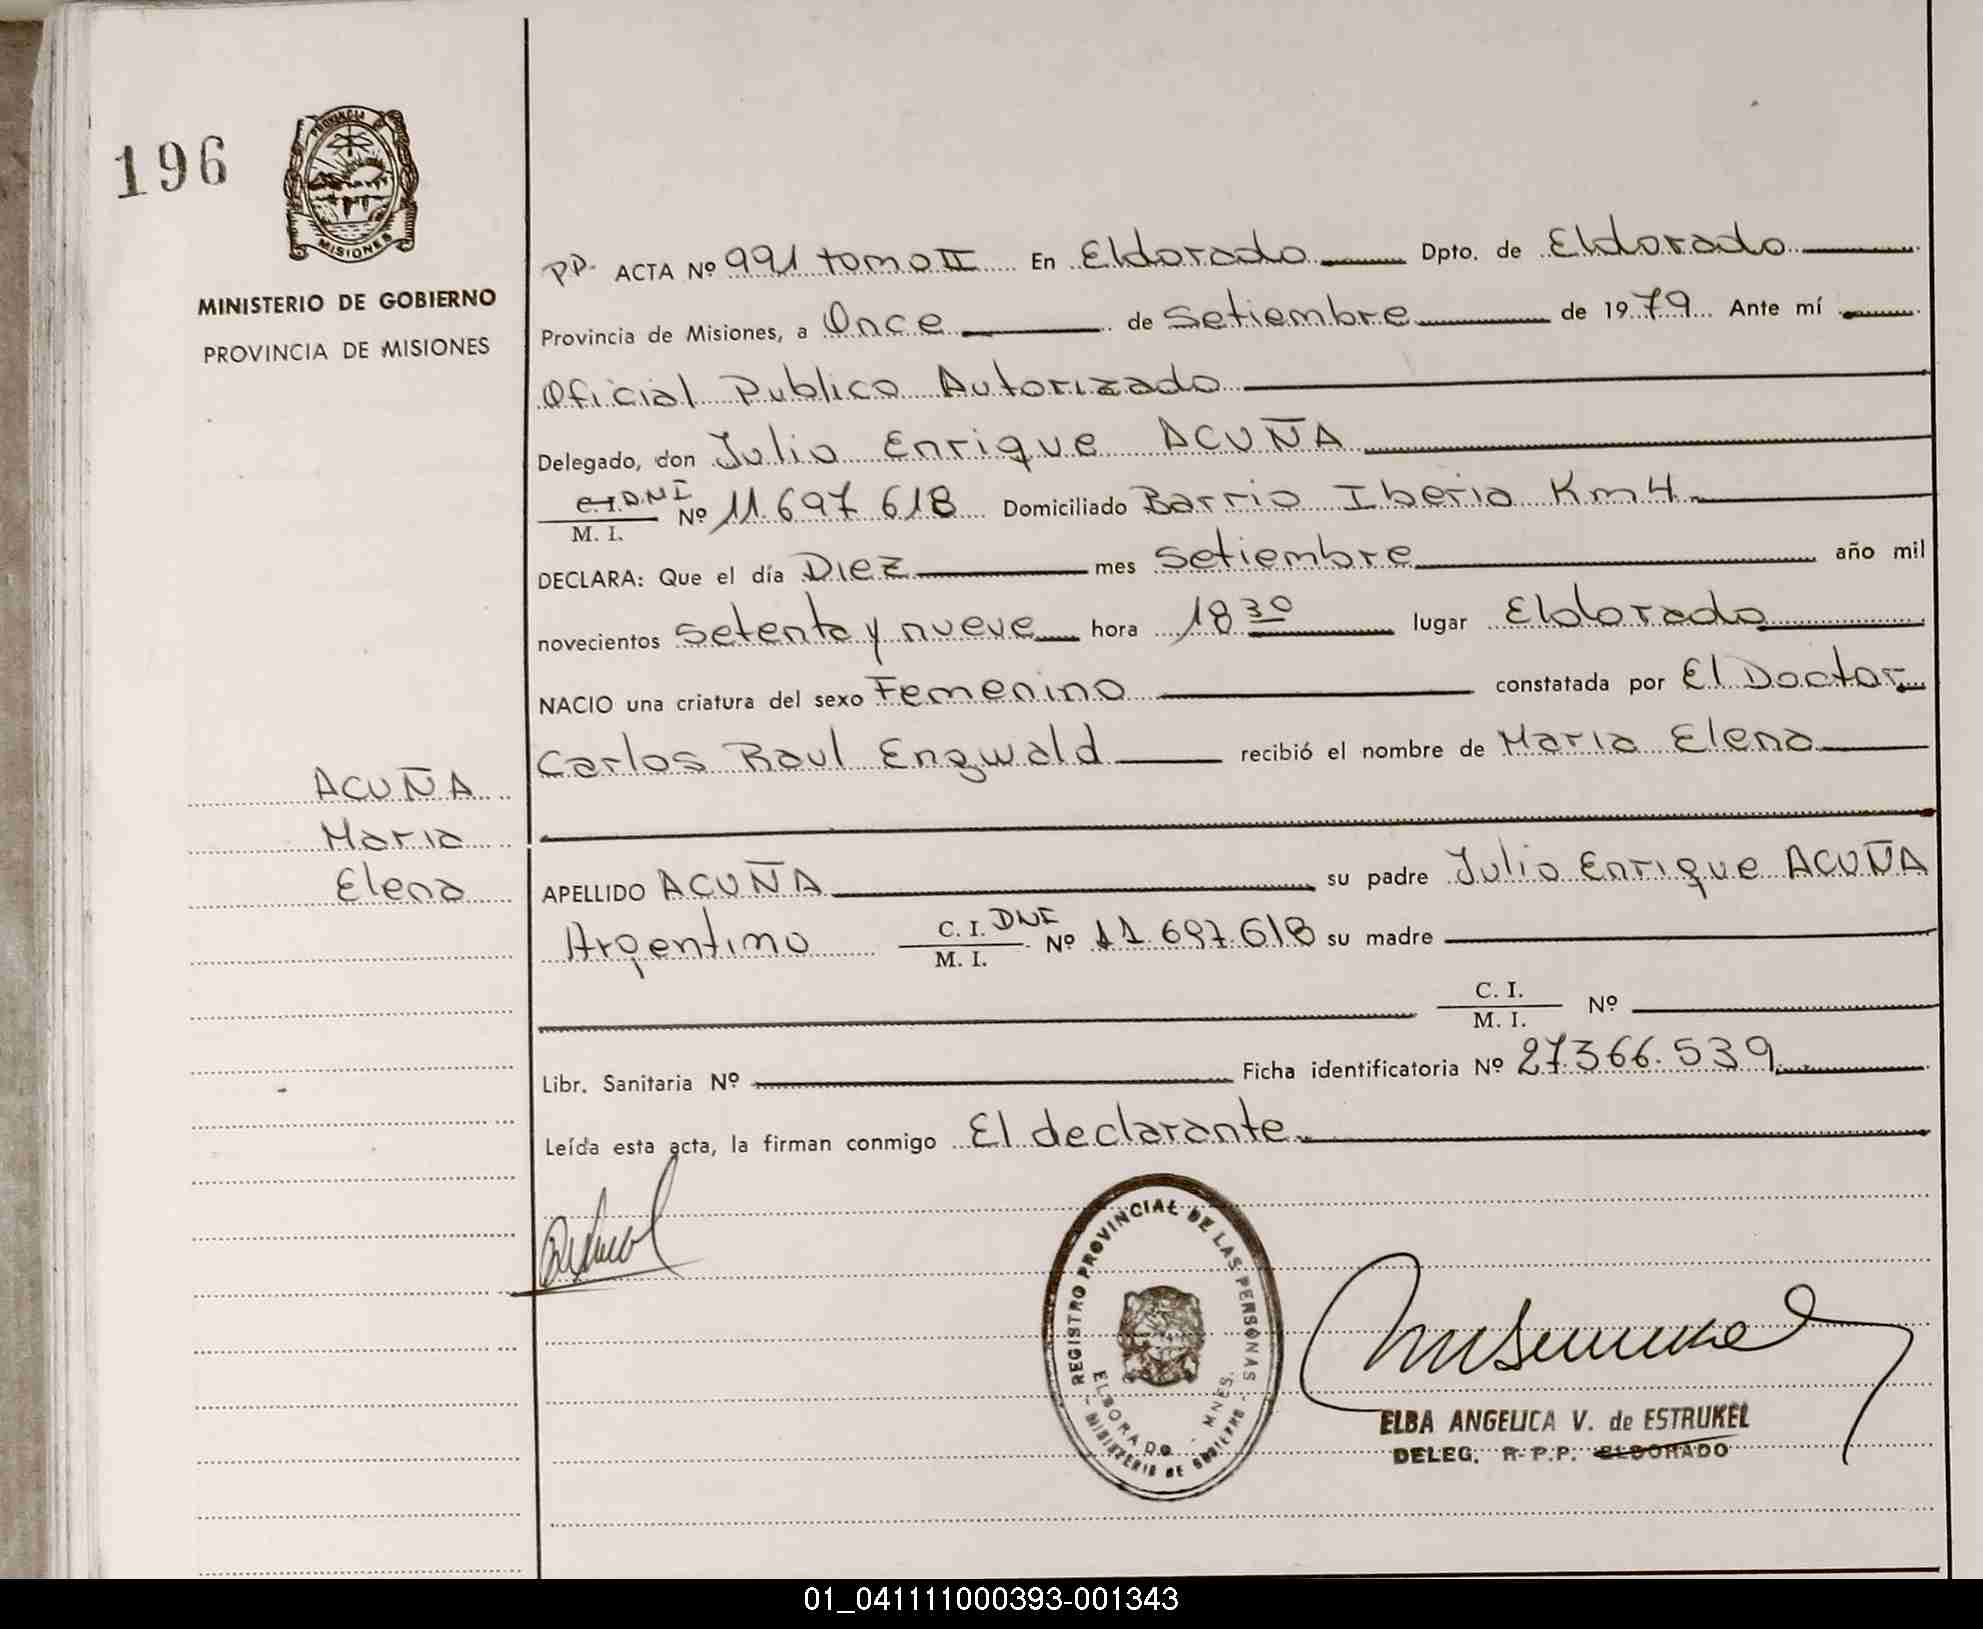 196
PROVINCIA DE
MISIONES
MINISTERIO DE GOBIERNO
PROVINCIA DE MISIONES
PP. ACTA Nº 991 tomo II En Eldorado Dpto. de Eldorado
Provincia de Misiones, a Once de Setiembre de 1979 Ante mí
Oficial Publico Autorizado
Delegado, don Julio Enrique ACUÑA
C.I. DNI
M. I. Nº 11.697.618 Domiciliado Barrio Iberia Km 4
DECLARA: Que el día Diez mes Setiembre año mil
novecientos Setenta y nueve hora 18 30 lugar Eldorado
NACIO una criatura del sexo Femenino constatada por El Doctor
Carlos Raul Engwald recibió el nombre de Maria Elena
ACUÑA
Maria
Elena
APELLIDO ACUÑA su padre Julio Enrique ACUÑA
Argentino C. I. DNI Nº 11.697.618 su madre
M. I.
C. I. Nº
M. I.
Libr. Sanitaria Nº Ficha identificatoria Nº 27.366.539
Leída esta acta, la firman conmigo El declarante
REGISTRO PROVINCIAL DE LAS PERSONAS
ELDORADO - MNES.
- MINISTERIO DE GOBIERNO -
ELBA ANGELICA V. de ESTRUKEL
DELEG. R.P.P. ELDORADO
01_041111000393-001343